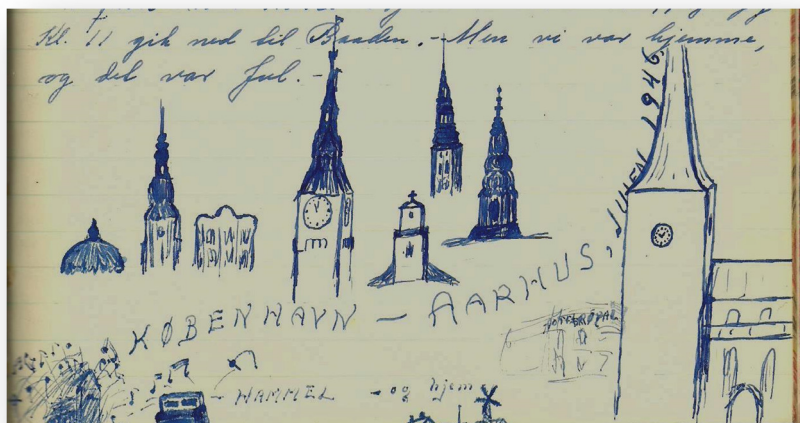 Kl. 11 gik ned til Baaden. - Men vi var hjemme,
og det var Jul. -
KØBENHAVN - AARHUS, JULEN 1946.
- HAMMEL - og hjem